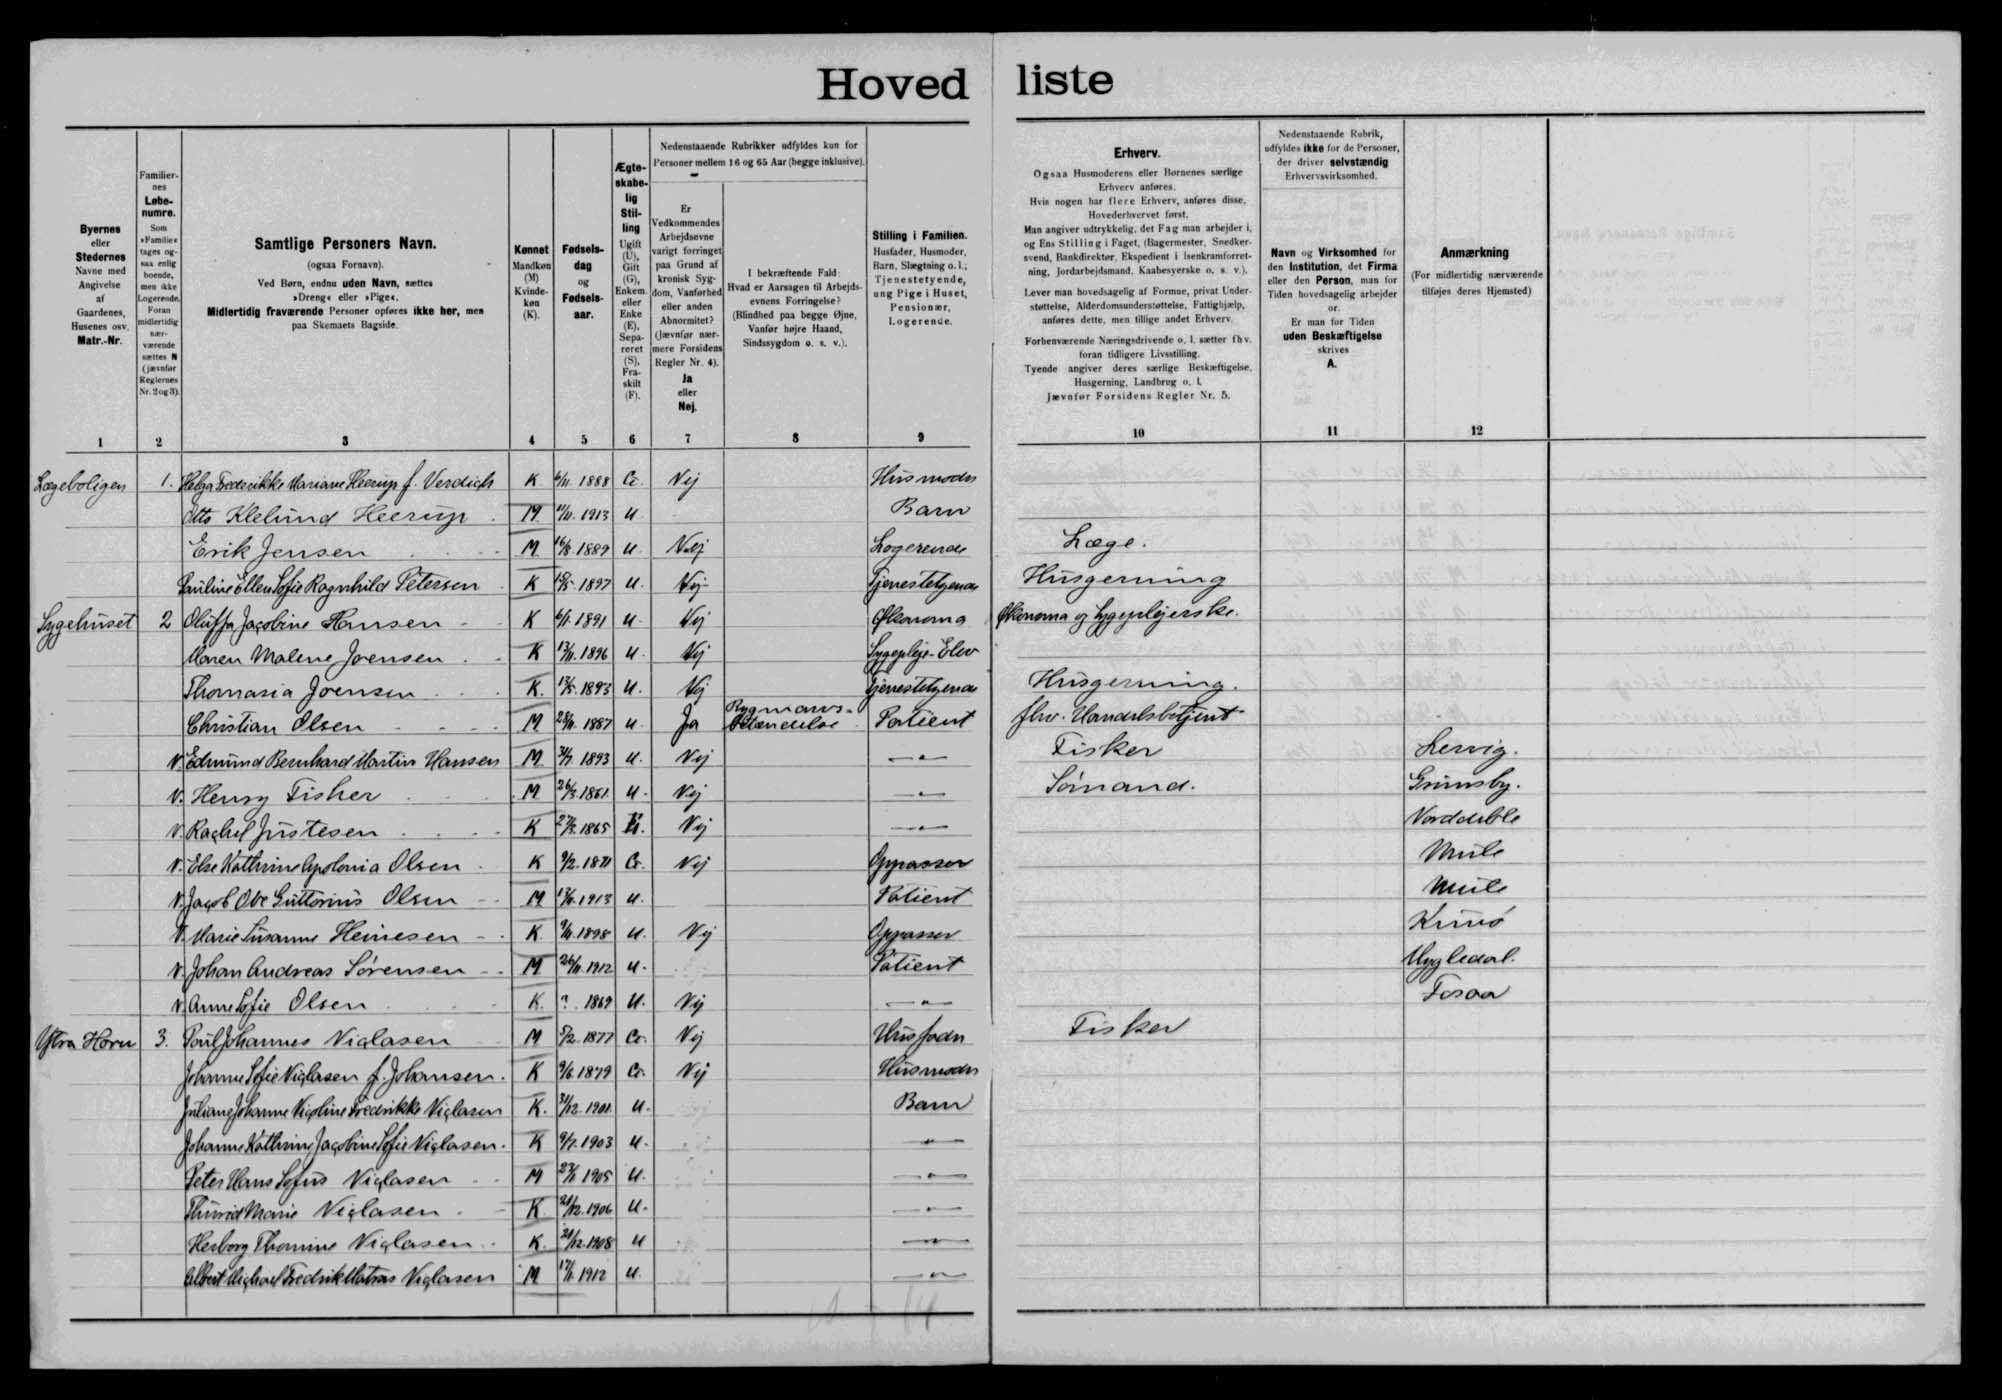 Hoved liste
Byernes
eller
Stedernes
Navne med
Angivelse
af
Gaardenes,
Husenes osv.
Matr.-Nr.
Familier-
nes
Løbe-
numre.
Som
»Familie«
tages og-
saa enlig
boende,
men ikke
Logerende.
Foran
midlertidig
nær-
værende
sættes N
(jævnfør
Reglernes
Nr. 2 og 3).
Samtlige Personers Navn.
(ogsaa Fornavn).
Ved Børn, endnu uden Navn, sættes
»Dreng« eller »Pige«.
Midlertidig fraværende Personer opføres ikke her, men
paa Skemaets Bagside.
Kønnet
Mandkøn
(M)
Kvinde-
køn
(K).
Fødsels-
dag
og
Fødsels-
aar.
Ægte-
skabe-
lig
Stil-
ling
Ugift
(U),
Gift
(G),
Enkem.
eller
Enke
(E),
Sepa-
reret
(S),
Fra-
skilt
(F).
Nedenstaaende Rubrikker udfyldes kun for
Personer mellem 16 og 65 Aar (begge inklusive).
Er
Vedkommendes
Arbejdsevne
varigt forringet
paa Grund af
kronisk Syg-
dom, Vanførhed
eller anden
Abnormitet?
(Jævnfør nær-
mere Forsidens
Regler Nr. 4).
Ja
eller
Nej.
I bekræftende Fald:
Hvad er Aarsagen til Arbejds-
evnens Forringelse?
(Blindhed paa begge Øjne,
Vanfør højre Haand,
Sindssygdom o. s. v.).
Stilling i Familien.
Husfader, Husmoder,
Barn, Slægtning o. l.;
Tjenestetyende,
ung Pige i Huset,
Pensionær,
Logerende.
Erhverv.
Ogsaa Husmoderens eller Børnenes særlige
Erhverv anføres.
Hvis nogen har flere Erhverv, anføres disse,
Hovederhvervet først.
Man angiver udtrykkelig, det Fag man arbejder i,
og Ens Stilling i Faget, (Bagermester, Snedker-
svend, Bankdirektør, Ekspedient i Isenkramforret-
ning, Jordarbejdsmand, Kaabesyerske o. s. v.).
Lever man hovedsagelig af Formue, privat Under-
støttelse, Alderdomsunderstøttelse, Fattighjælp,
anføres dette, men tillige andet Erhverv.
Forhenværende Næringsdrivende o. l. sætter fhv.
foran tidligere Livsstilling.
Tyende angiver deres særlige Beskæftigelse,
Husgerning, Landbrug o. l.
Jævnfør Forsidens Regler Nr. 5.
Nedenstaaende Rubrik,
udfyldes ikke for de Personer,
der driver selvstændig
Erhvervsvirksomhed.
Navn og Virksomhed for
den Institution, det Firma
eller den Person, man for
Tiden hovedsagelig arbejder
for.
Er man for Tiden
uden Beskæftigelse
skrives
A.
Anmærkning
(For midlertidig nærværende
tilføjes deres Hjemsted)
1 2 3 4 5 6 7 8 9 10 11 12
Lægeboligen 1. Helga Frederikke Mariane Heerup f. Verdich K 1888 G. Nej Husmoder
Otto Klelund Heerup M. 1913 U. Barn
Erik Jensen M. 16/8. 1889 U. Nej Logerende Læge.
Pauline Ellen Sofie Ragnhild Petersen K 1897 U. Nej Tjenestetyende Husgerning
Sygehuset 2 Oluffa Jacobine Hansen K 6/1. 1891 U. Nej Økonoma Økonoma og Sygeplejerske.
Maren Malene Joensen K 13/11. 1896 U. Nej Sygepleje-Elev
Thomasia Joensen K. 13/5. 1893 U. Nej Tjenestetyende Husgerning.
Christian Olsen M. 28/11. 1887 U. Ja Rygmarvs-betændelse Patient fhv. Handelsbetjent
N. Edmund Bernhard Martin Hansen M. 1893 U. Nej -"- Fisker Lervig.
N. Henry Fisher M. 26/3. 1861 U. Nej -"- Sømand. Grimsby.
N. Rachel Justesen K 27/3. 1865 Nej -"- Norddeble
N. Else Kathrine Apolonia Olsen K 9/2. 1871 G. Nej Oppasser Mule
N. Jacob Obe Guttorius Olsen M 1913 U. Patient Mule
N. Marie Susanne Heinesen K. 1898 U. Nej Oppasser Kunø
N. Johan Andreas Sörensen M 26/11. 1912 U. Patient Uygledal.
N. Anne Sofie Olsen K. ? 1869 U. Nej -"- Fosaa
Ytra Horn 3. Poul Johannes Viclasen M 5/2. 1877 G. Nej Husfader Fisker
Johanne Sofie Niclasen f. Johansen. K 9/6. 1879 G. Nej Husmoder
Juliane Johanne Nicoline Fredrikke Niclasen K. 31/12. 1901. U. Barn
Johanne Kathrine Jacobine Sofie Niclasen. K 9/7. 1903 U. -"-
Peter Hans Sofus Niclasen M 1905 U. -"-
Thurid Marie Niclasen K. 21/12. 1906 U. -"-
Herborg Thomine Niclasen K. 21/12. 1908 U -"-
Albert Michael Fredrik Matras Niclasen M 1912 U. -"-